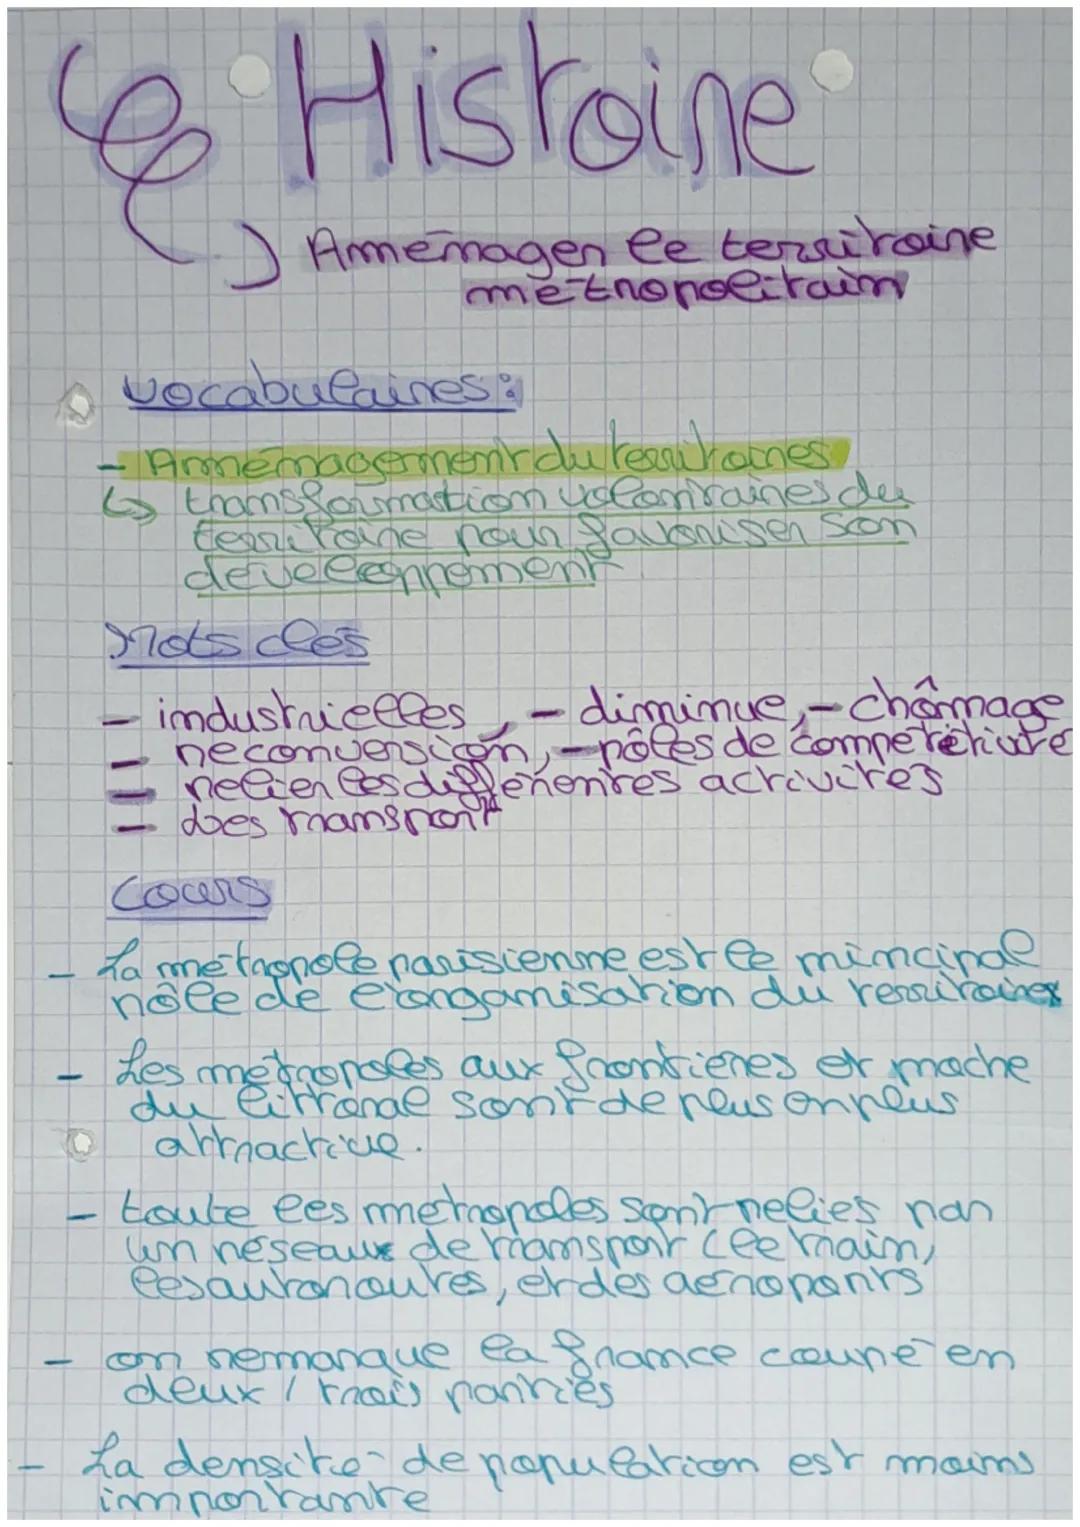 Histoire
Aménager le territoire
métropolitain
Vocabulaires :
- Aménagement du territoires
↳ transformation volontraires du
territoire pour favoriser son
develeoppement
Mots clés
- industrielles, - diminue, - chômage
- reconversion, - pôles de compétetivite
- relier les differentes activités
- Des transport
Cours
- La métropole parisienne est le principal
pôle de l'organisation du territoires
- Les métropoles aux frontières et proche
du littoral sont de plus en plus
attractive.
- toute les metropoles sont relies par
un réseaux de transport (le train,
les autoroutes, et des aeroports
- on remarque la france coupé en
deux / trois parties
- La densité de population est moins
importante